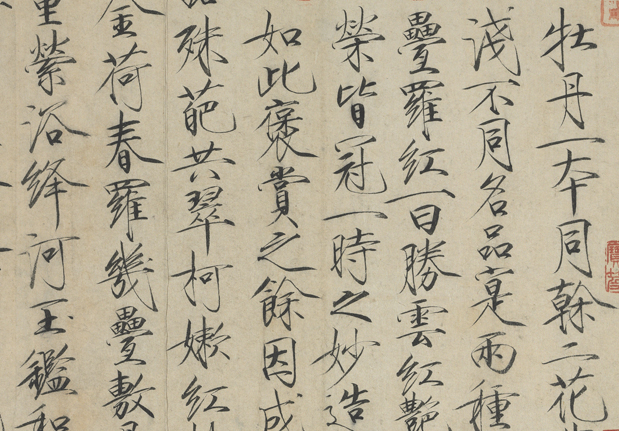 牡丹一夲同幹二花
淺不同名品寔兩種
疊羅紅一曰勝雲紅艷
榮皆冠一時之妙造
如此褒賞之餘因成
殊葩共翠柯嫩紅
金荷春羅幾疊敷
重縈浴絳河玉鑑和